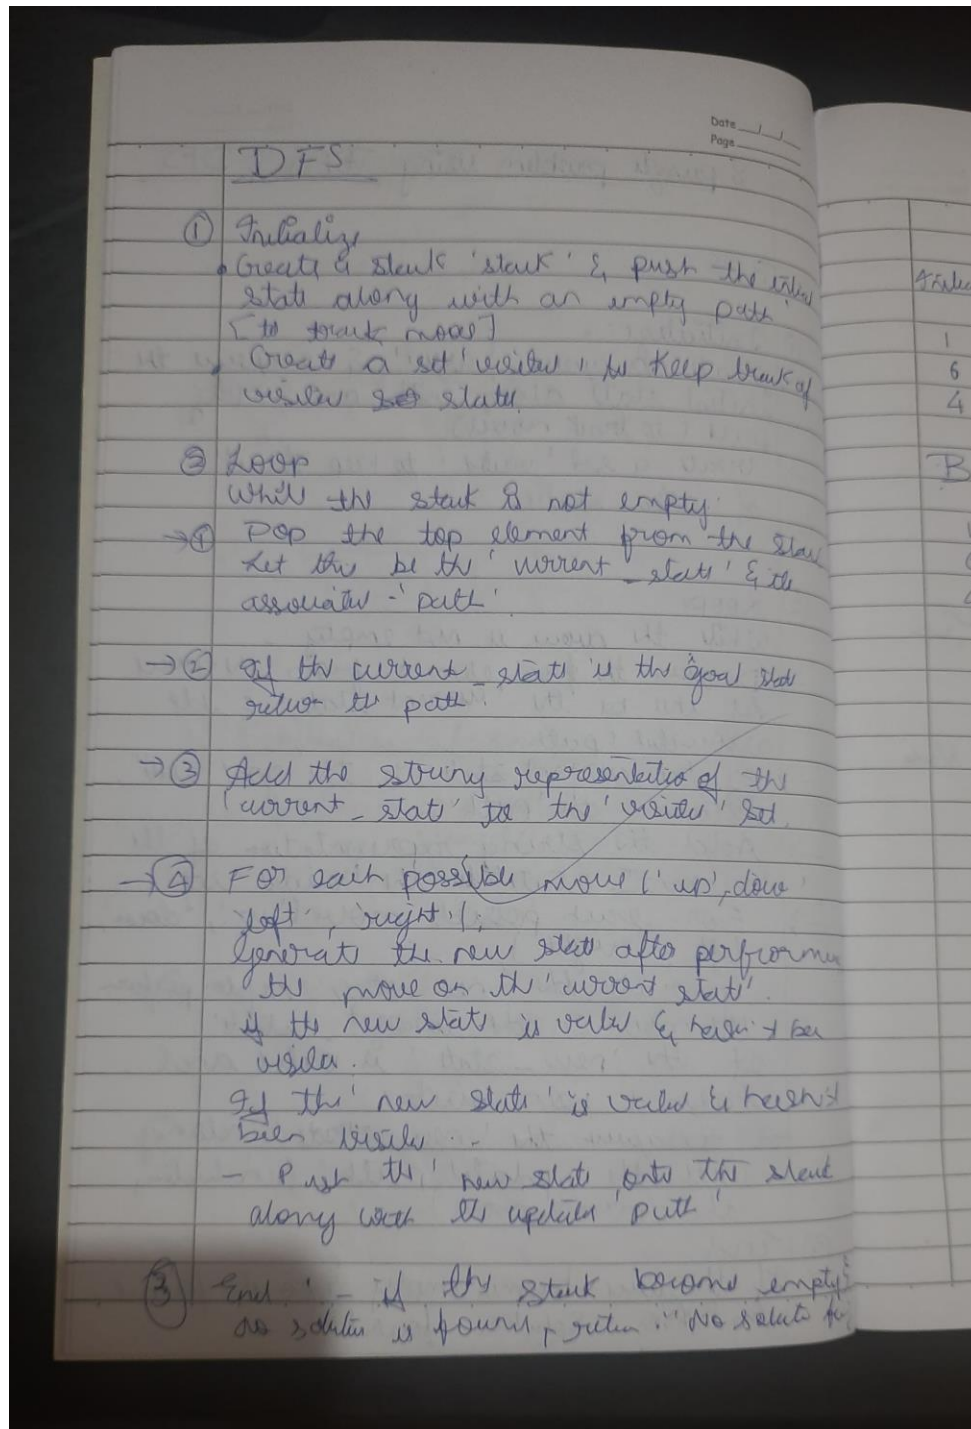 Date __/__/__
Page ______
DFS
① Initialize
• Create a stack 'stack' & push the initial
state along with an empty path
[to track moves]
• Create a set 'visited' to keep track of
visited states.
② Loop
While the stack is not empty.
→ ① Pop the top element from the stack
Let this be the 'current_state' & its
associated - 'path'.
→ ② If the current_state is the goal state
return the path.
→ ③ Add the string representation of the
'current_state' to the 'visited' set.
→ ④ For each possible move ('up', down
left', 'right'):
Generate the new state after performing
the move on the 'current state'.
if the new state is valid & hasn't been
visited.
If the 'new state' is valid & hasn't
been visited -
- Push the 'new state' onto the stack
along with the updated 'path'
③ End :- if the stack becomes empty &
no solution is found, return "No solution
1
6
4
B